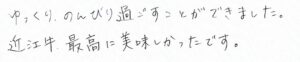 ゆっくり、のんびり過ごすことができました。
近江牛、最高に美味しかったです。